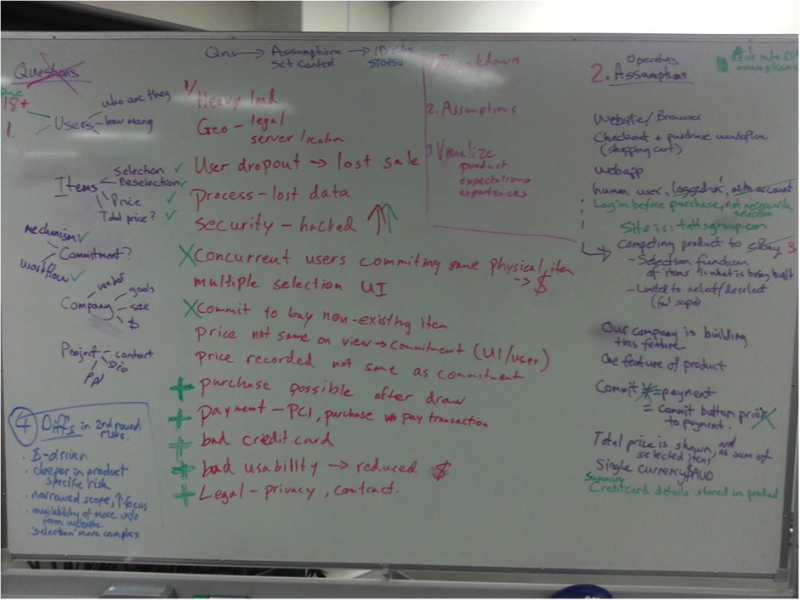 Questions
Qns → Assumptions → ID risks
Set Context
18+
1.
Users
who are they
how many
Items
Selection ✓
Deselection ✓
Price ✓
Total price? ✓
mechanism ✓
Commitment?
workflow ✓
Company
goals
size
$
Project
contact
4 Diffs in 2nd round
risks.
. B-driven
. deeper in product
specific risk
. narrowed scope, ↑focus
. availability of more info
from website
. 'selection' more complex
Heavy load
Geo - legal
server location
User dropout → lost sale
Process - lost data
security - hacked
X Concurrent users commiting same physical item
→ $
multiple selection UI
X Commit to buy non-existing item
price not same on view → commitment (UI/user)
price recorded not same as commitment
+ purchase possible after draw
+ Payment - PCI, purchase w/o pay transaction
+ bad credit card
+ bad usability → reduced $
+ Legal - privacy, contract.
1. Breakdown
2. Assumptions
3 Visualize
product
expectations
experiences
2. Operating
Assumptions
Website/Browser
Checkout + purchase workflow
(shopping cart)
webapp
human user, logged in, with account
Login before purchase, not necessarily
selection
Site is: tattsgroup.com
Competing product to eBay 3
- Selection function
of items is what is being built
- Limited to select/deselect
Our company is building
this feature
One feature of product
Commit ≠ payment
= commit button prior
to payment.
Total price is shown, and as sum of
selected items
Single currency $AUD
Summary
Credit card details stored in product